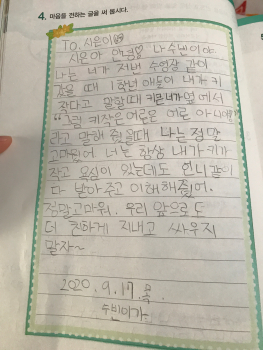 4. 마음을 전하는 글을 써 봅시다.
To. 시은이
시은아 안녕 나 수빈이야
나는 네가 저번 수영장 같이
갔을 때 1학년 애들이 내가 키
작다고 말할때 키큰네가 옆에서
"그럼 키작은 어른은 어른 아니야?"
라고 말해 줬을때 나는 정말
고마웠어 너는 항상 내가 키가
작고 욕심이 있는데도 언니같이
다 받아주고 이해해줬어.
정말고마워. 우리 앞으로도
더 친하게 지내고 싸우지
말자~
2020. 9. 17. 목
수빈이가